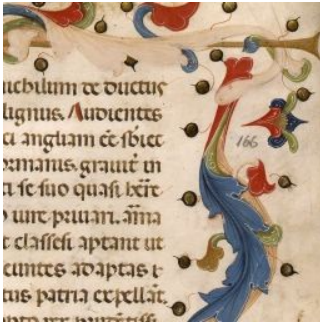 nichilum de ductus
lignis. Audientes
ci angliam eē sbiec
ormanis. grauit in
ti se suo quasi hēre
iure priuari. arma
t classes aptant ut
euntes ad aptas
tus patria expellāt.
166